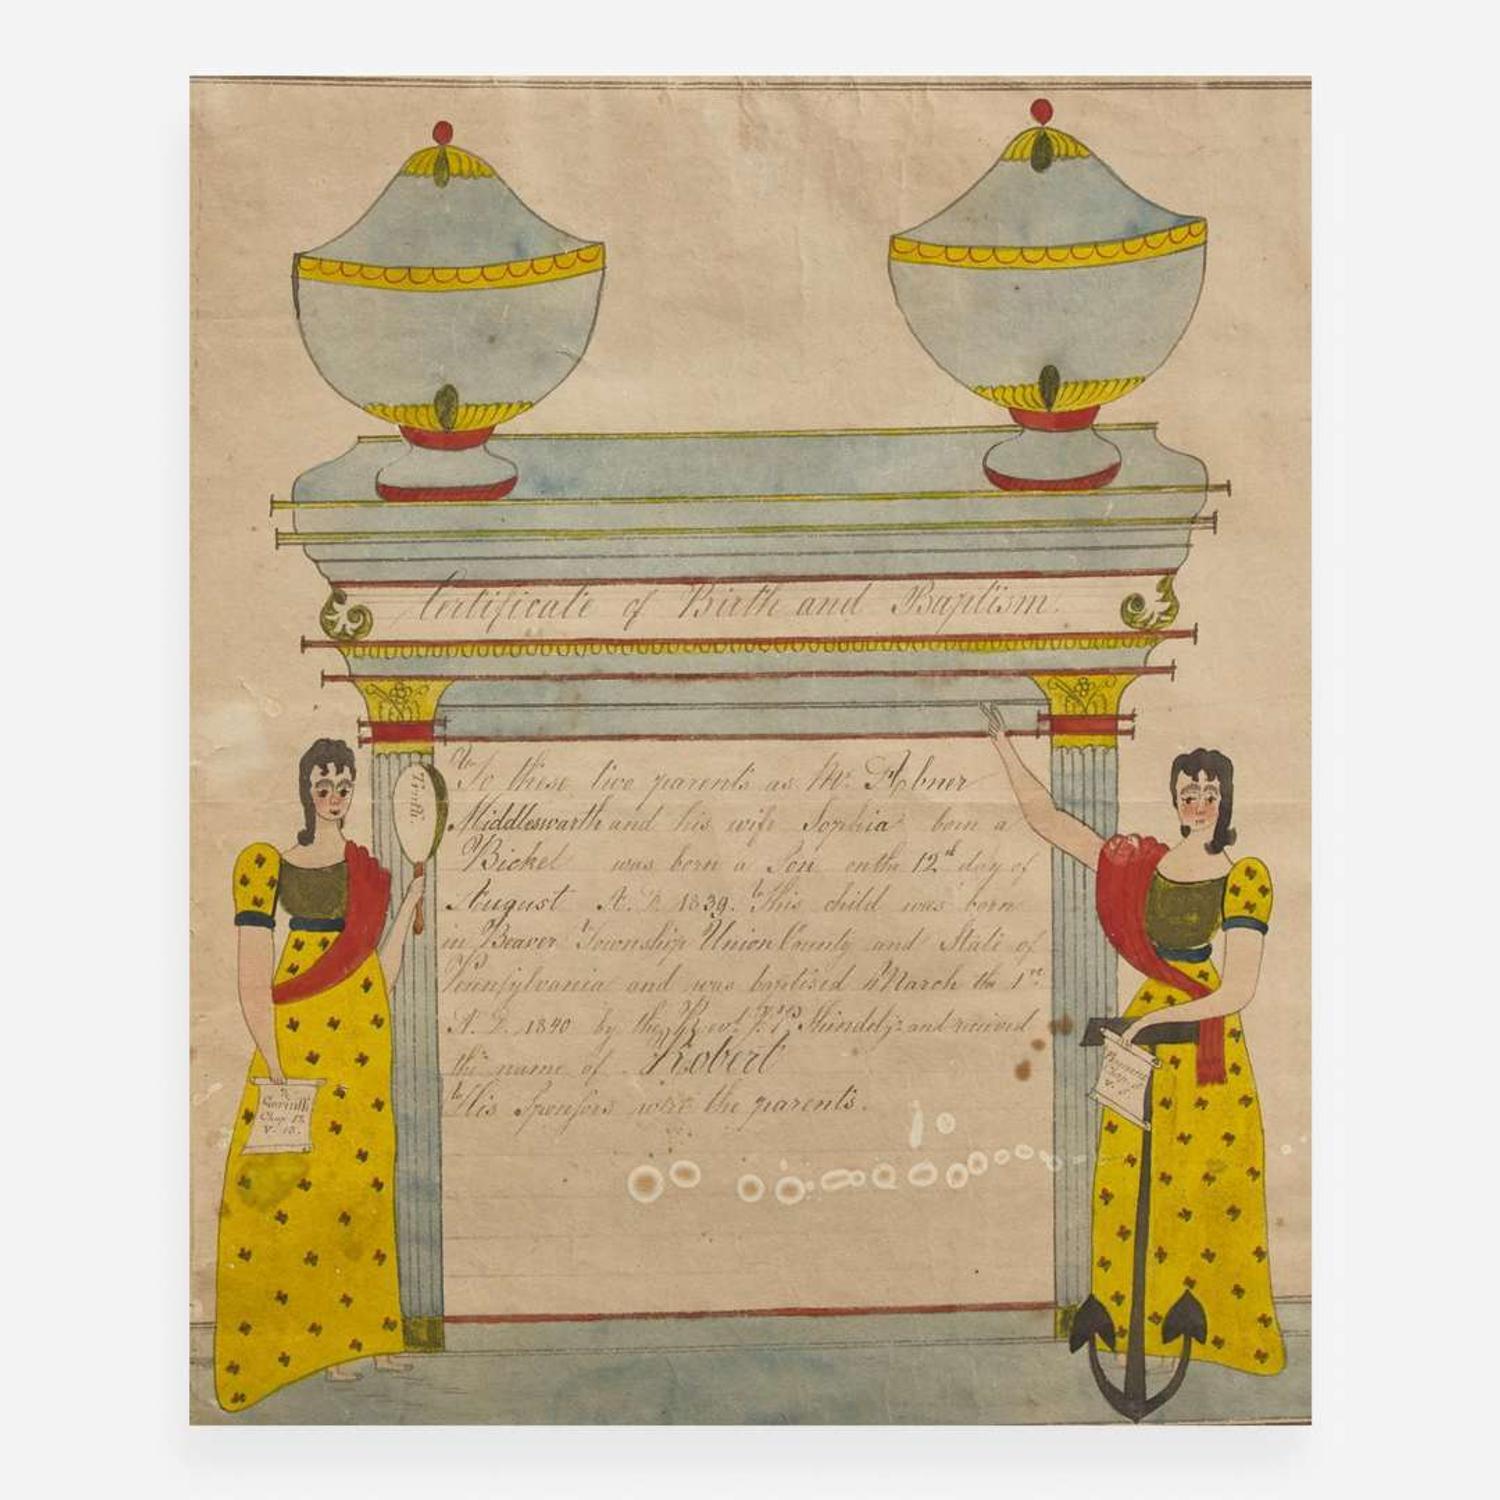 Certificate of Birth and Baptism.
To these two parents as Mr. Abner
Middleswarth and his wife Sophia born a
Bickel was born a Son on the 12th day of
August A. D. 1839. This child was born
in Beaver Township Union County and State of
Pennsylvania and was baptised March the 1st
A. D. 1840 by the Revd. J. P. Shindel jr and recieved
the name of Robert
His Sponsors were the parents.
Truth.
Corinth
Chap 13
V. 13.
Chap.
V. 5.